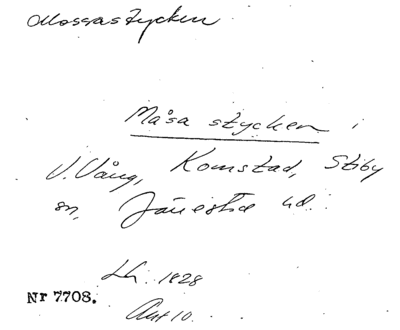 Mossastycken
Måsa stycken i
V. Vång, Komstad, Stiby
sn, Järrestad hd.
Lh. 1828
Akt 10
Nr 7708.